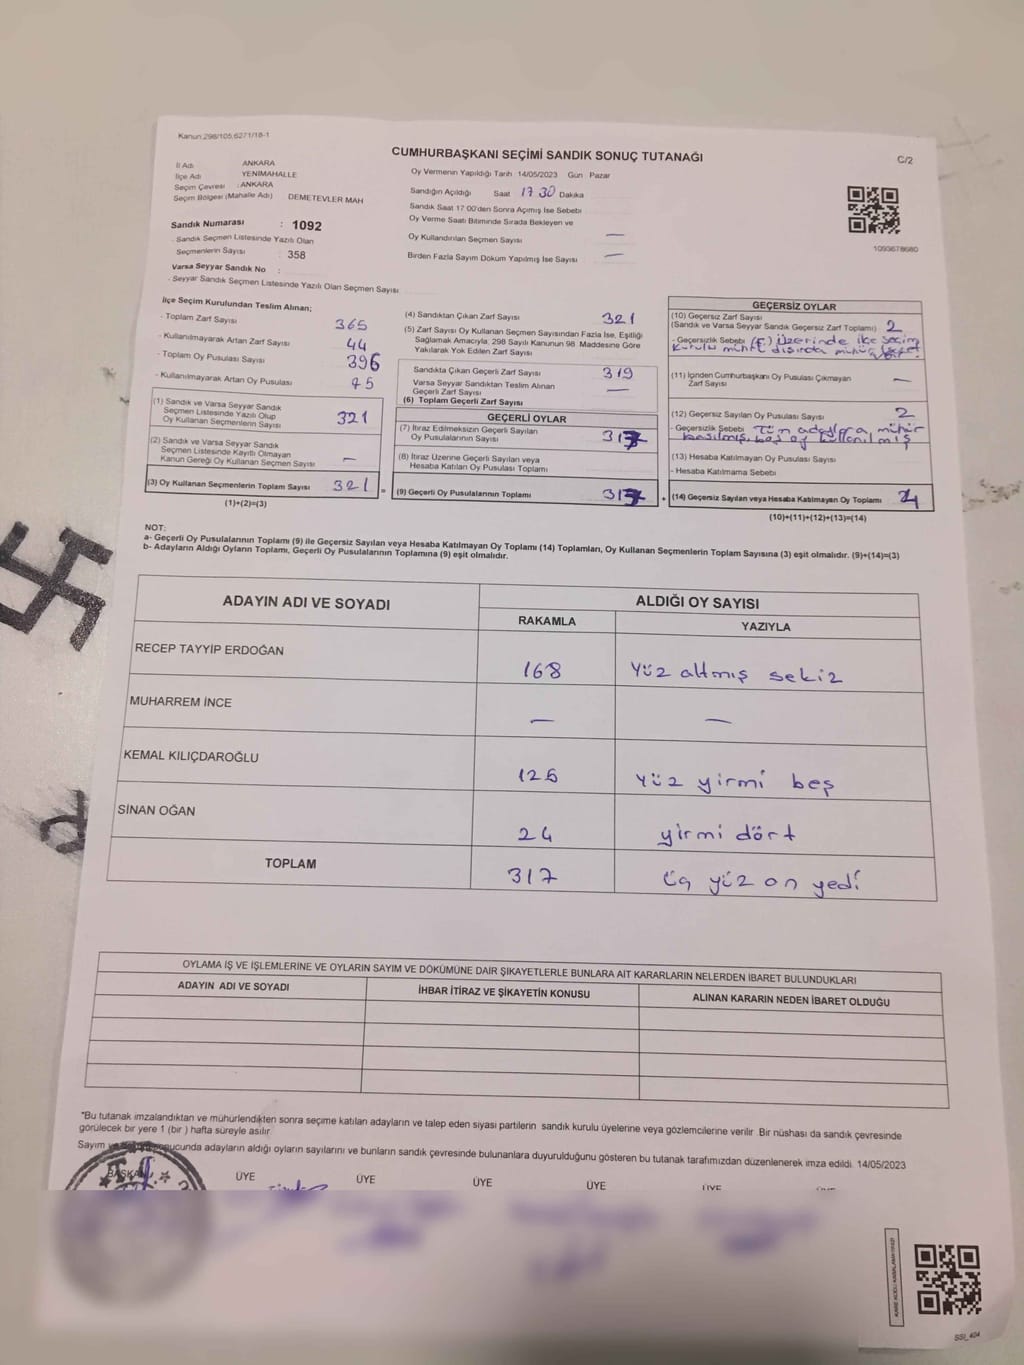 Kanun:298/105,6271/18-1
CUMHURBAŞKANI SEÇİMİ SANDIK SONUÇ TUTANAĞI
C/2
İl Adı ANKARA
İlçe Adı YENİMAHALLE
Seçim Çevresi : ANKARA
Seçim Bölgesi (Mahalle Adı) DEMETEVLER MAH
Oy Vermenin Yapıldığı Tarih 14/05/2023 Gün Pazar
Sandığın Açıldığı Saat 17 30 Dakika
Sandık Saat 17 00'den Sonra Açımış İse Sebebi
Oy Verme Saati Bitiminde Sırada Bekleyen ve
Oy Kullandırılan Seçmen Sayısı —
Birden Fazla Sayım Döküm Yapılmış İse Sayısı —
1093678680
Sandık Numarası : 1092
- Sandık Seçmen Listesinde Yazılı Olan
Seçmenlerin Sayısı : 358
Varsa Seyyar Sandık No :
- Seyyar Sandık Seçmen Listesinde Yazılı Olan Seçmen Sayısı
İlçe Seçim Kurulundan Teslim Alınan;
- Toplam Zarf Sayısı 365
- Kullanılmayarak Artan Zarf Sayısı 44
- Toplam Oy Pusulası Sayısı 396
- Kullanılmayarak Artan Oy Pusulası 75
(1) Sandık ve Varsa Seyyar Sandık
Seçmen Listesinde Yazılı Olup
Oy Kullanan Seçmenlerin Sayısı 321
(2) Sandık ve Varsa Seyyar Sandık
Seçmen Listesinde Kayıtlı Olmayan
Kanun Gereği Oy Kullanan Seçmen Sayısı —
(3) Oy Kullanan Seçmenlerin Toplam Sayısı 321
(1)+(2)=(3)
(4) Sandıktan Çıkan Zarf Sayısı 321
(5) Zarf Sayısı Oy Kullanan Seçmen Sayısından Fazla İse, Eşitliği
Sağlamak Amacıyla, 298 Sayılı Kanunun 98 Maddesine Göre
Yakılarak Yok Edilen Zarf Sayısı
Sandıkta Çıkan Geçerli Zarf Sayısı 319
Varsa Seyyar Sandıktan Teslim Alınan
Geçerli Zarf Sayısı —
(6) Toplam Geçerli Zarf Sayısı
GEÇERLİ OYLAR
(7) İtiraz Edilmeksizin Geçerli Sayılan
Oy Pusulalarının Sayısı 317
(8) İtiraz Üzerine Geçerli Sayılan veya
Hesaba Katılan Oy Pusulası Toplamı
(9) Geçerli Oy Pusulalarının Toplamı 317
GEÇERSİZ OYLAR
(10) Geçersiz Zarf Sayısı
(Sandık ve Varsa Seyyar Sandık Geçersiz Zarf Toplamı) 2
- Geçersizlik Sebebi Üzerinde ilçe seçim
kurulu mührü dışında mühür
(11) İçinden Cumhurbaşkanı Oy Pusulası Çıkmayan
Zarf Sayısı —
(12) Geçersiz Sayılan Oy Pusulası Sayısı 2
- Geçersizlik Sebebi Tüm adaylara mühür
basılmış, boş oy kullanılmış
(13) Hesaba Katılmayan Oy Pusulası Sayısı
- Hesaba Katılmama Sebebi
(14) Geçersiz Sayılan veya Hesaba Katılmayan Oy Toplamı 4
(10)+(11)+(12)+(13)=(14)
NOT:
a- Geçerli Oy Pusulalarının Toplamı (9) ile Geçersiz Sayılan veya Hesaba Katılmayan Oy Toplamı (14) Toplamları, Oy Kullanan Seçmenlerin Toplam Sayısına (3) eşit olmalıdır. (9)+(14)=(3)
b- Adayların Aldığı Oyların Toplamı, Geçerli Oy Pusulalarının Toplamına (9) eşit olmalıdır.
ADAYIN ADI VE SOYADI
ALDIĞI OY SAYISI
RAKAMLA YAZIYLA
RECEP TAYYİP ERDOĞAN 168 Yüz altmış sekiz
MUHARREM İNCE — —
KEMAL KILIÇDAROĞLU 125 Yüz yirmi beş
SİNAN OĞAN 24 yirmi dört
TOPLAM 317 Üç yüz on yedi
OYLAMA İŞ VE İŞLEMLERİNE VE OYLARIN SAYIM VE DÖKÜMÜNE DAİR ŞİKAYETLERLE BUNLARA AİT KARARLARIN NELERDEN İBARET BULUNDUKLARI
ADAYIN ADI VE SOYADI İHBAR İTİRAZ VE ŞİKAYETİN KONUSU ALINAN KARARIN NEDEN İBARET OLDUĞU
"Bu tutanak imzalandıktan ve mühürlendikten sonra seçime katılan adayların ve talep eden siyasi partilerin sandık kurulu üyelerine veya gözlemcilerine verilir. Bir nüshası da sandık çevresinde
görülecek bir yere 1 (bir ) hafta süreyle asılır.
Sayım ve sonucunda adayların aldığı oyların sayılarını ve bunların sandık çevresinde bulunanlara duyurulduğunu gösteren bu tutanak tarafımızdan düzenlenerek imza edildi. 14/05/2023
BAŞKAN ÜYE ÜYE ÜYE ÜYE ÜYE
SSI_404